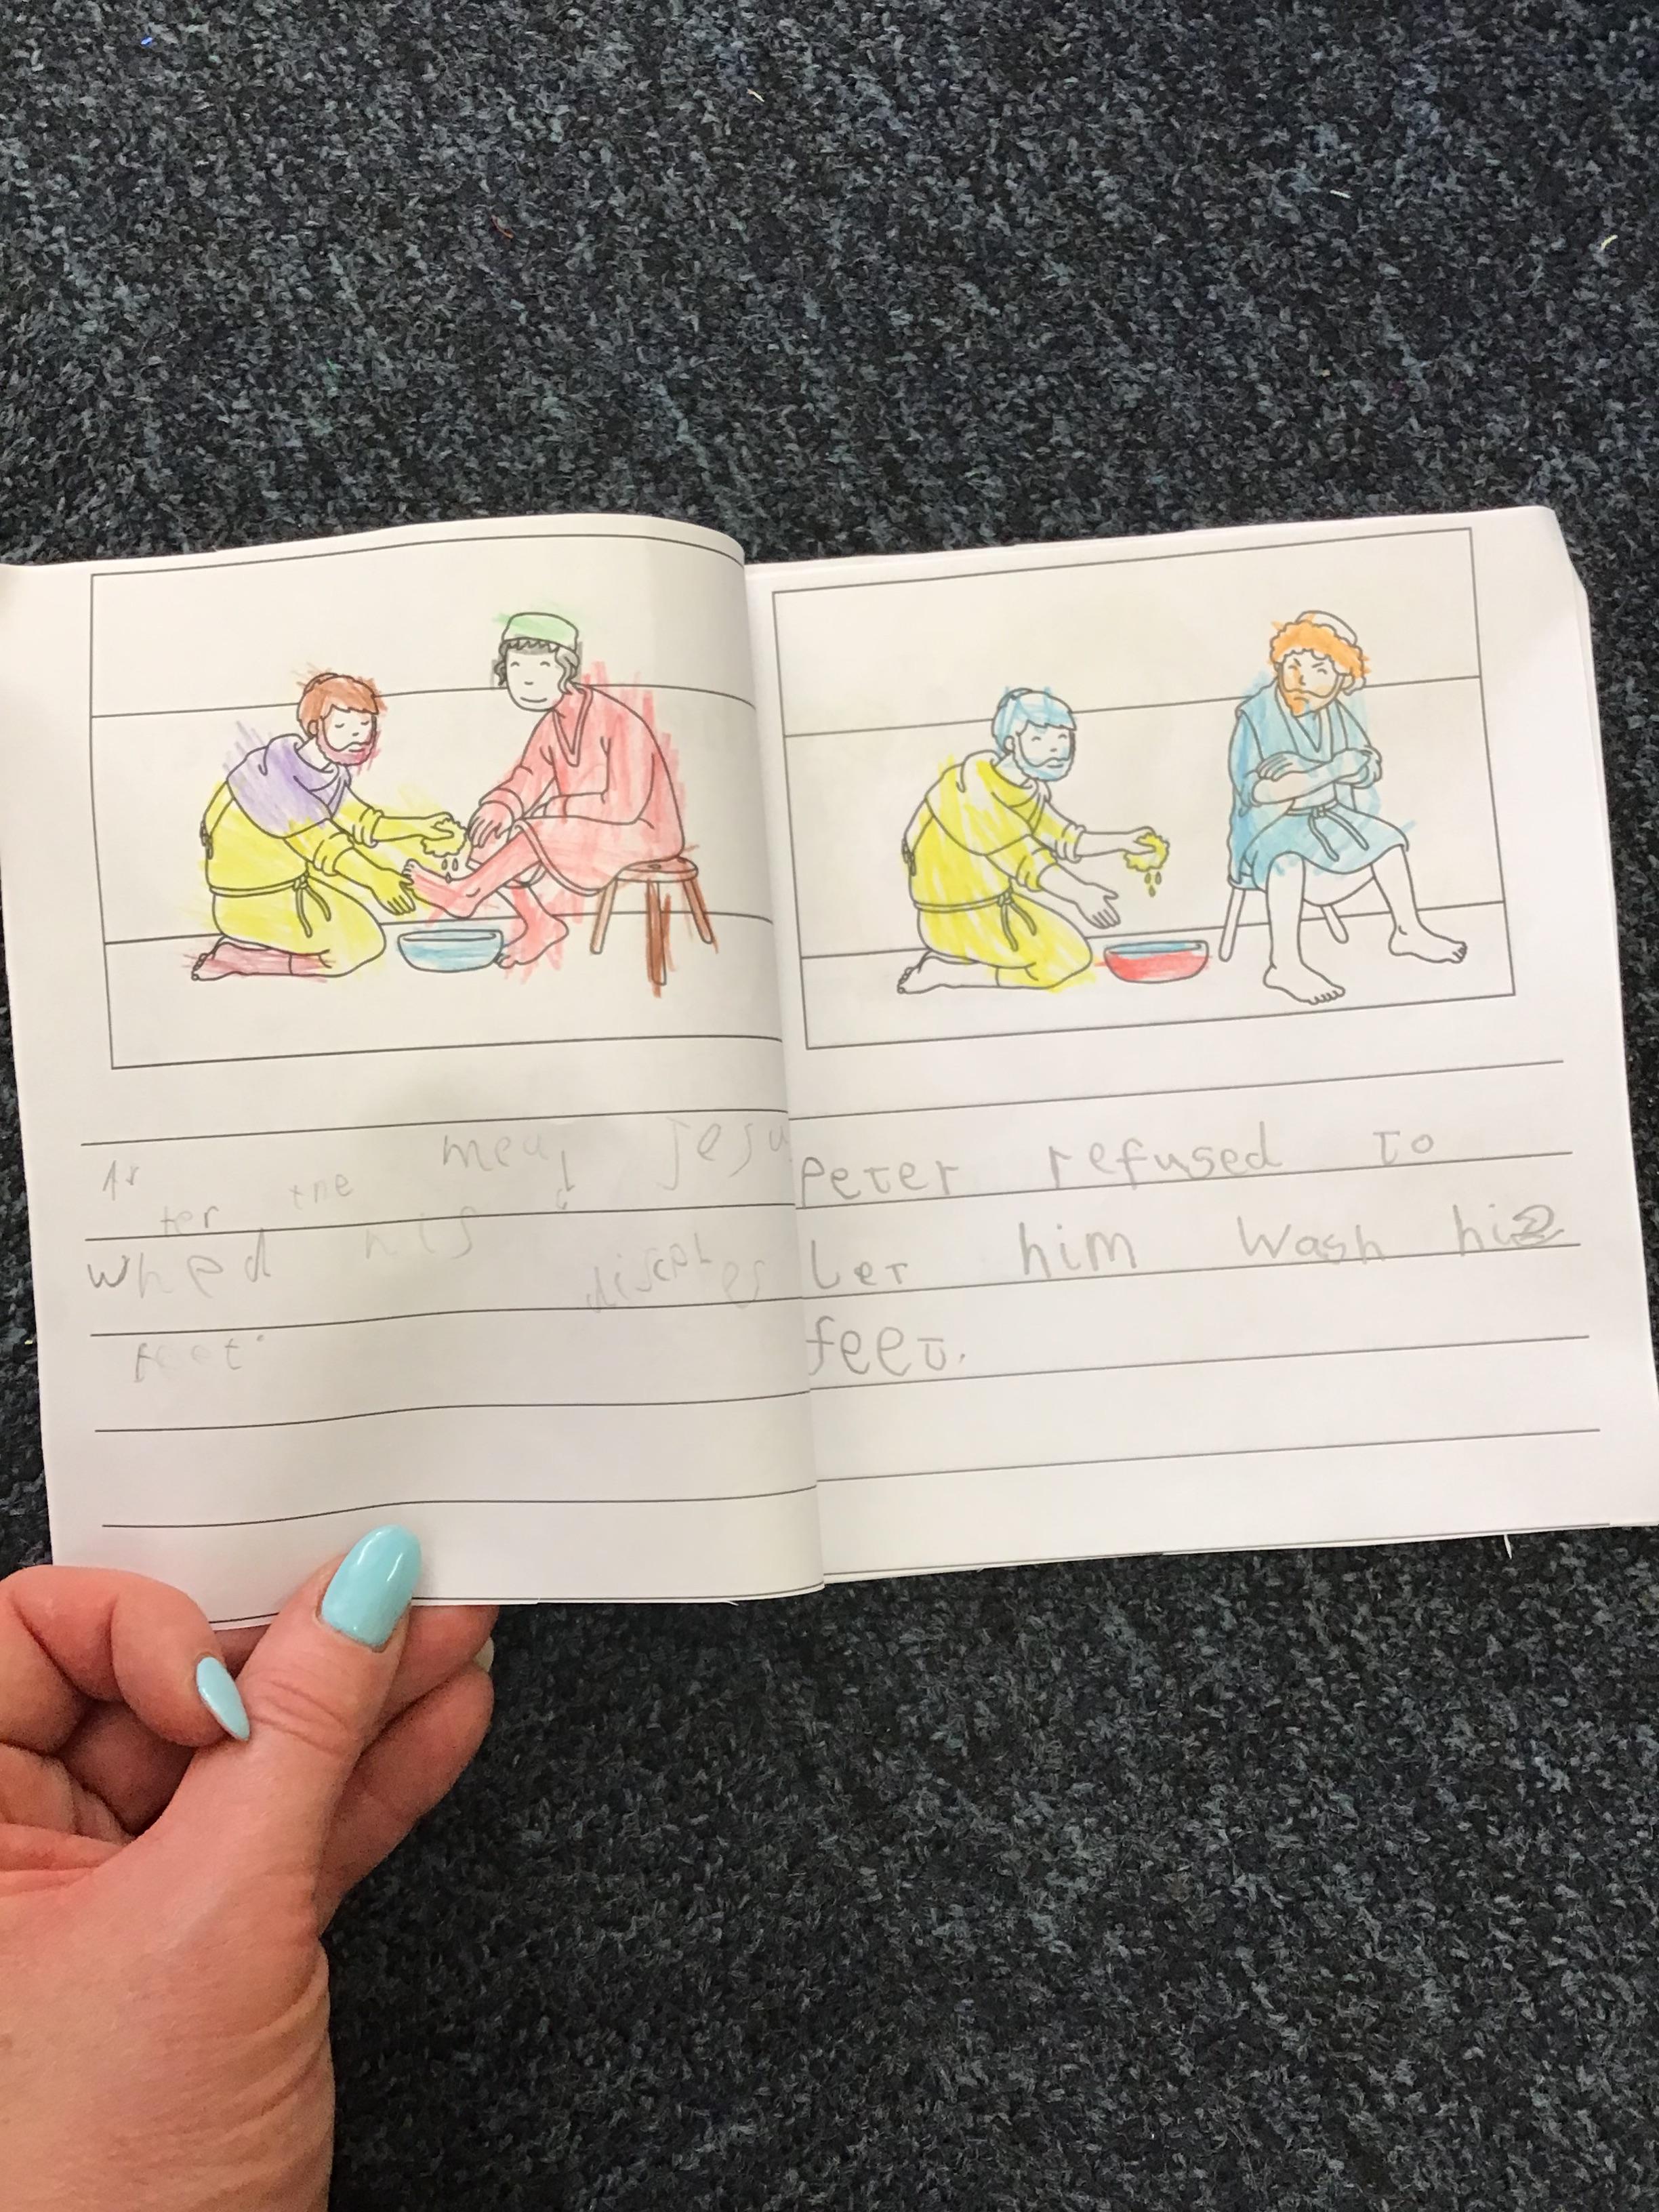 After the meal Jesu
whed his disciples
feet.
Peter refused to
let him wash his
feet.